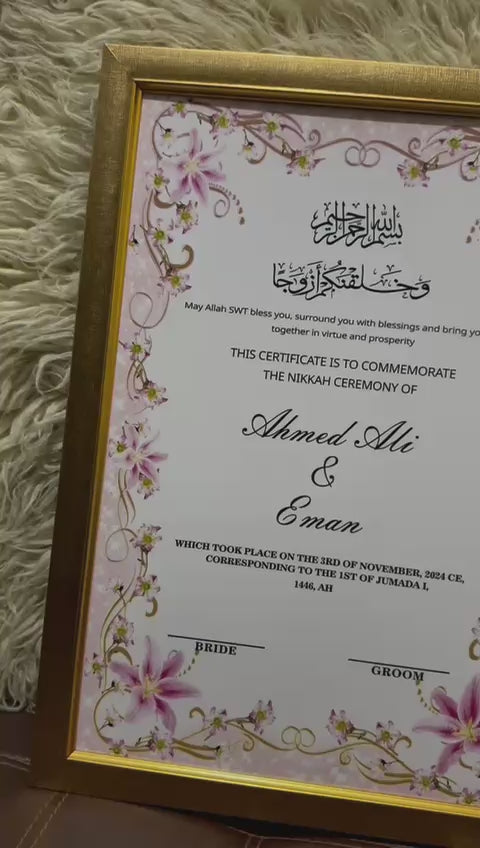 بسم الله الرحمن الرحيم
وَخَلَقْنَاكُمْ أَزْوَاجًا
May Allah SWT bless you, surround you with blessings and bring yo
together in virtue and prosperity
THIS CERTIFICATE IS TO COMMEMORATE
THE NIKKAH CEREMONY OF
Ahmed Ali
&
Eman
WHICH TOOK PLACE ON THE 3RD OF NOVEMBER, 2024 CE,
CORRESPONDING TO THE 1ST OF JUMADA I,
1446, AH
BRIDE
GROOM